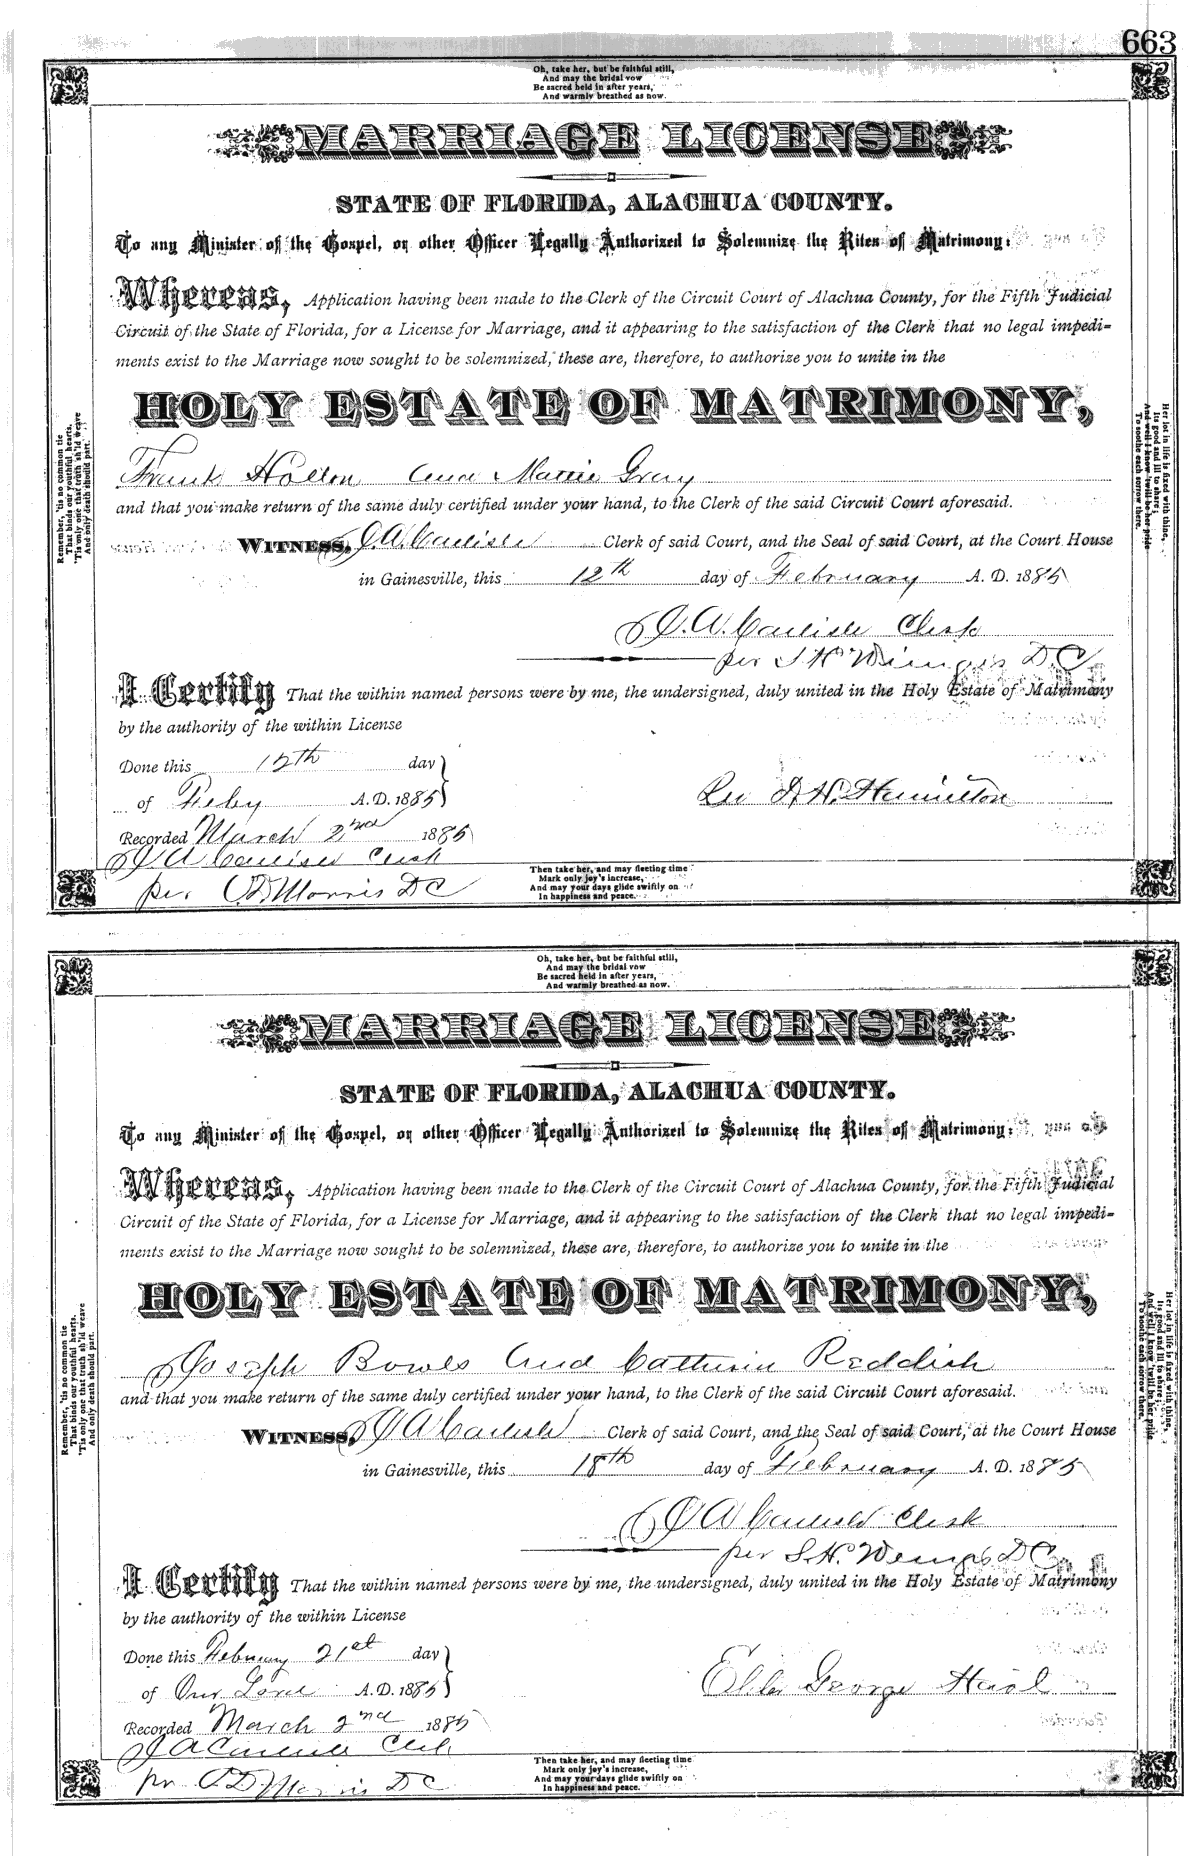 663
Oh, take her, but be faithful still,
And may the bridal vow
Be sacred held in after years,
And warmly breathed as now.
MARRIAGE LICENSE
STATE OF FLORIDA, ALACHUA COUNTY.
To any Minister of the Gospel, or other Officer Legally Authorized to Solemnize the Rites of Matrimony:
Whereas, Application having been made to the Clerk of the Circuit Court of Alachua County, for the Fifth Judicial
Circuit of the State of Florida, for a License for Marriage, and it appearing to the satisfaction of the Clerk that no legal impedi-
ments exist to the Marriage now sought to be solemnized, these are, therefore, to authorize you to unite in the
HOLY ESTATE OF MATRIMONY,
Frank Holton and Mattie Gray
and that you make return of the same duly certified under your hand, to the Clerk of the said Circuit Court aforesaid.
WITNESS, J. A. Carlisle Clerk of said Court, and the Seal of said Court, at the Court House
in Gainesville, this 12th day of February A. D. 1885
J. A. Carlisle Clerk
per S H DC
I Certify That the within named persons were by me, the undersigned, duly united in the Holy Estate of Matrimony
by the authority of the within License
Done this 12th day
of Feby A.D. 1885
Rev D. H. Hamilton
Recorded March 2nd 1885
J A Carlisle Clerk
per O. D. Morris DC
Remember, 'tis no common tie
That binds our youthful hearts,
'Tis only one that truth sh'ld weave
And only death should part.
Her lot in life is fixed with thine,
Its good and ill to share;
And well I know 'twill be her pride
To soothe each sorrow there.
Then take her, and may fleeting time
Mark only joy's increase,
And may your days glide swiftly on
In happiness and peace.
Oh, take her, but be faithful still,
And may the bridal vow
Be sacred held in after years,
And warmly breathed as now.
MARRIAGE LICENSE
STATE OF FLORIDA, ALACHUA COUNTY.
To any Minister of the Gospel, or other Officer Legally Authorized to Solemnize the Rites of Matrimony:
Whereas, Application having been made to the Clerk of the Circuit Court of Alachua County, for the Fifth Judicial
Circuit of the State of Florida, for a License for Marriage, and it appearing to the satisfaction of the Clerk that no legal impedi-
ments exist to the Marriage now sought to be solemnized, these are, therefore, to authorize you to unite in the
HOLY ESTATE OF MATRIMONY,
Joseph Bowls and Catherin Reddish
and that you make return of the same duly certified under your hand, to the Clerk of the said Circuit Court aforesaid.
WITNESS, J A Carlisle Clerk of said Court, and the Seal of said Court, at the Court House
in Gainesville, this 18th day of February A. D. 1885
J A Carlisle Clerk
per S. H. DC
I Certify That the within named persons were by me, the undersigned, duly united in the Holy Estate of Matrimony
by the authority of the within License
Done this February 21st day
of Our Lord A.D. 1885
George
Recorded March 2nd 1885
J A Carlisle Clerk
pr O. D. Morris DC
Remember, 'tis no common tie
That binds our youthful hearts,
'Tis only one that truth sh'ld weave
And only death should part.
Her lot in life is fixed with thine,
Its good and ill to share;
And well I know 'twill be her pride
To soothe each sorrow there.
Then take her, and may fleeting time
Mark only joy's increase,
And may your days glide swiftly on
In happiness and peace.